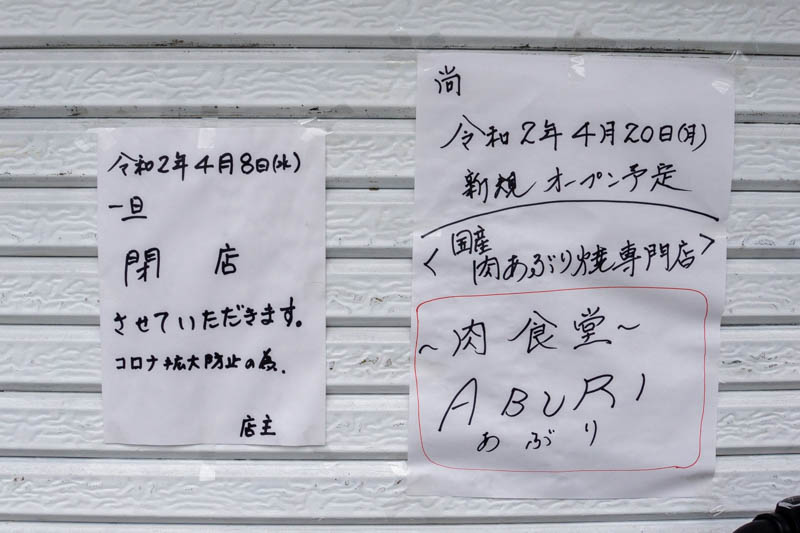 令和2年4月8日(水)
一旦
閉店
させていただきます。
コロナ拡大防止の為.
店主
尚
令和2年4月20日(月)
新規オープン予定
<国産
肉あぶり焼専門店>
~肉食堂~
ABURI
あぶり